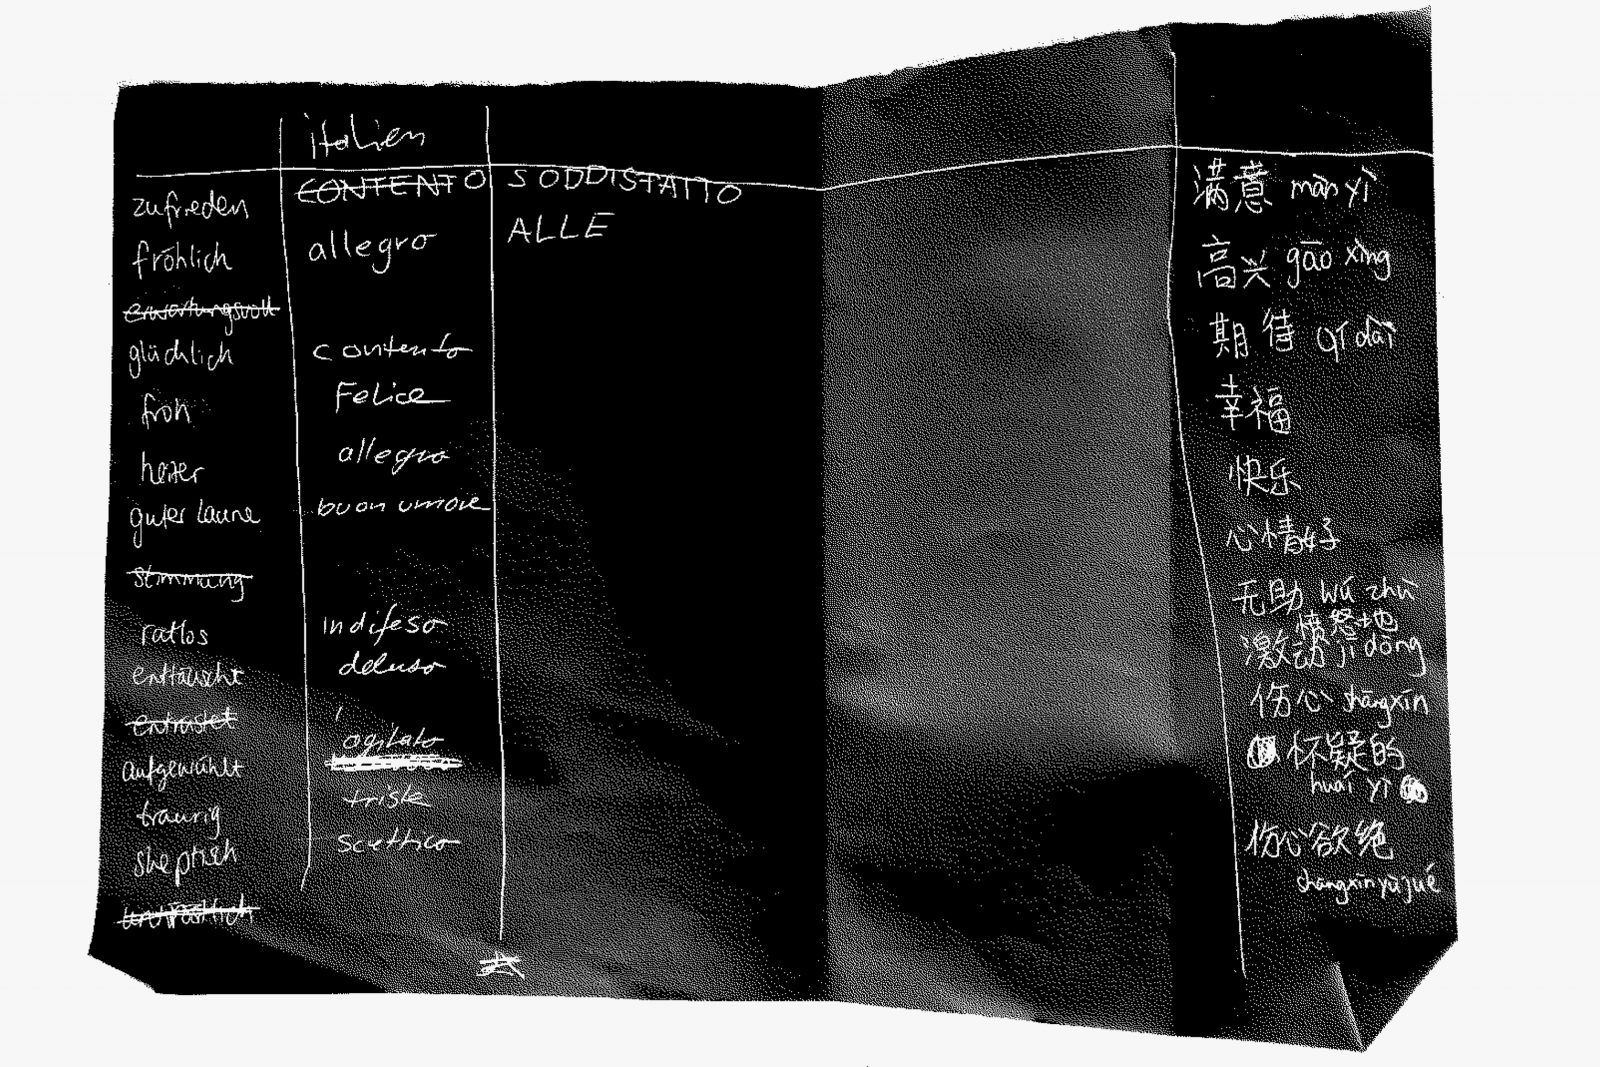 italien
zufrieden CONTENTO SODDISFATTO 满意 mǎn yì
fröhlich allegro ALLE 高兴 gāo xìng
erwartungsvoll 期待 qī dài
glücklich contento 幸福
froh Felice 快乐
heiter allegro 心情好
guter laune buon umore 无助 wú zhù
stimmung 愤怒地
ratlos indifeso 激动 jī dòng
enttäuscht deluso 伤心 shāngxīn
entrüstet 怀疑的
aufgewühlt agitato huái yí
traurig triste 伤心欲绝
skeptisch scettico shāngxīnyùjué
untröstlich